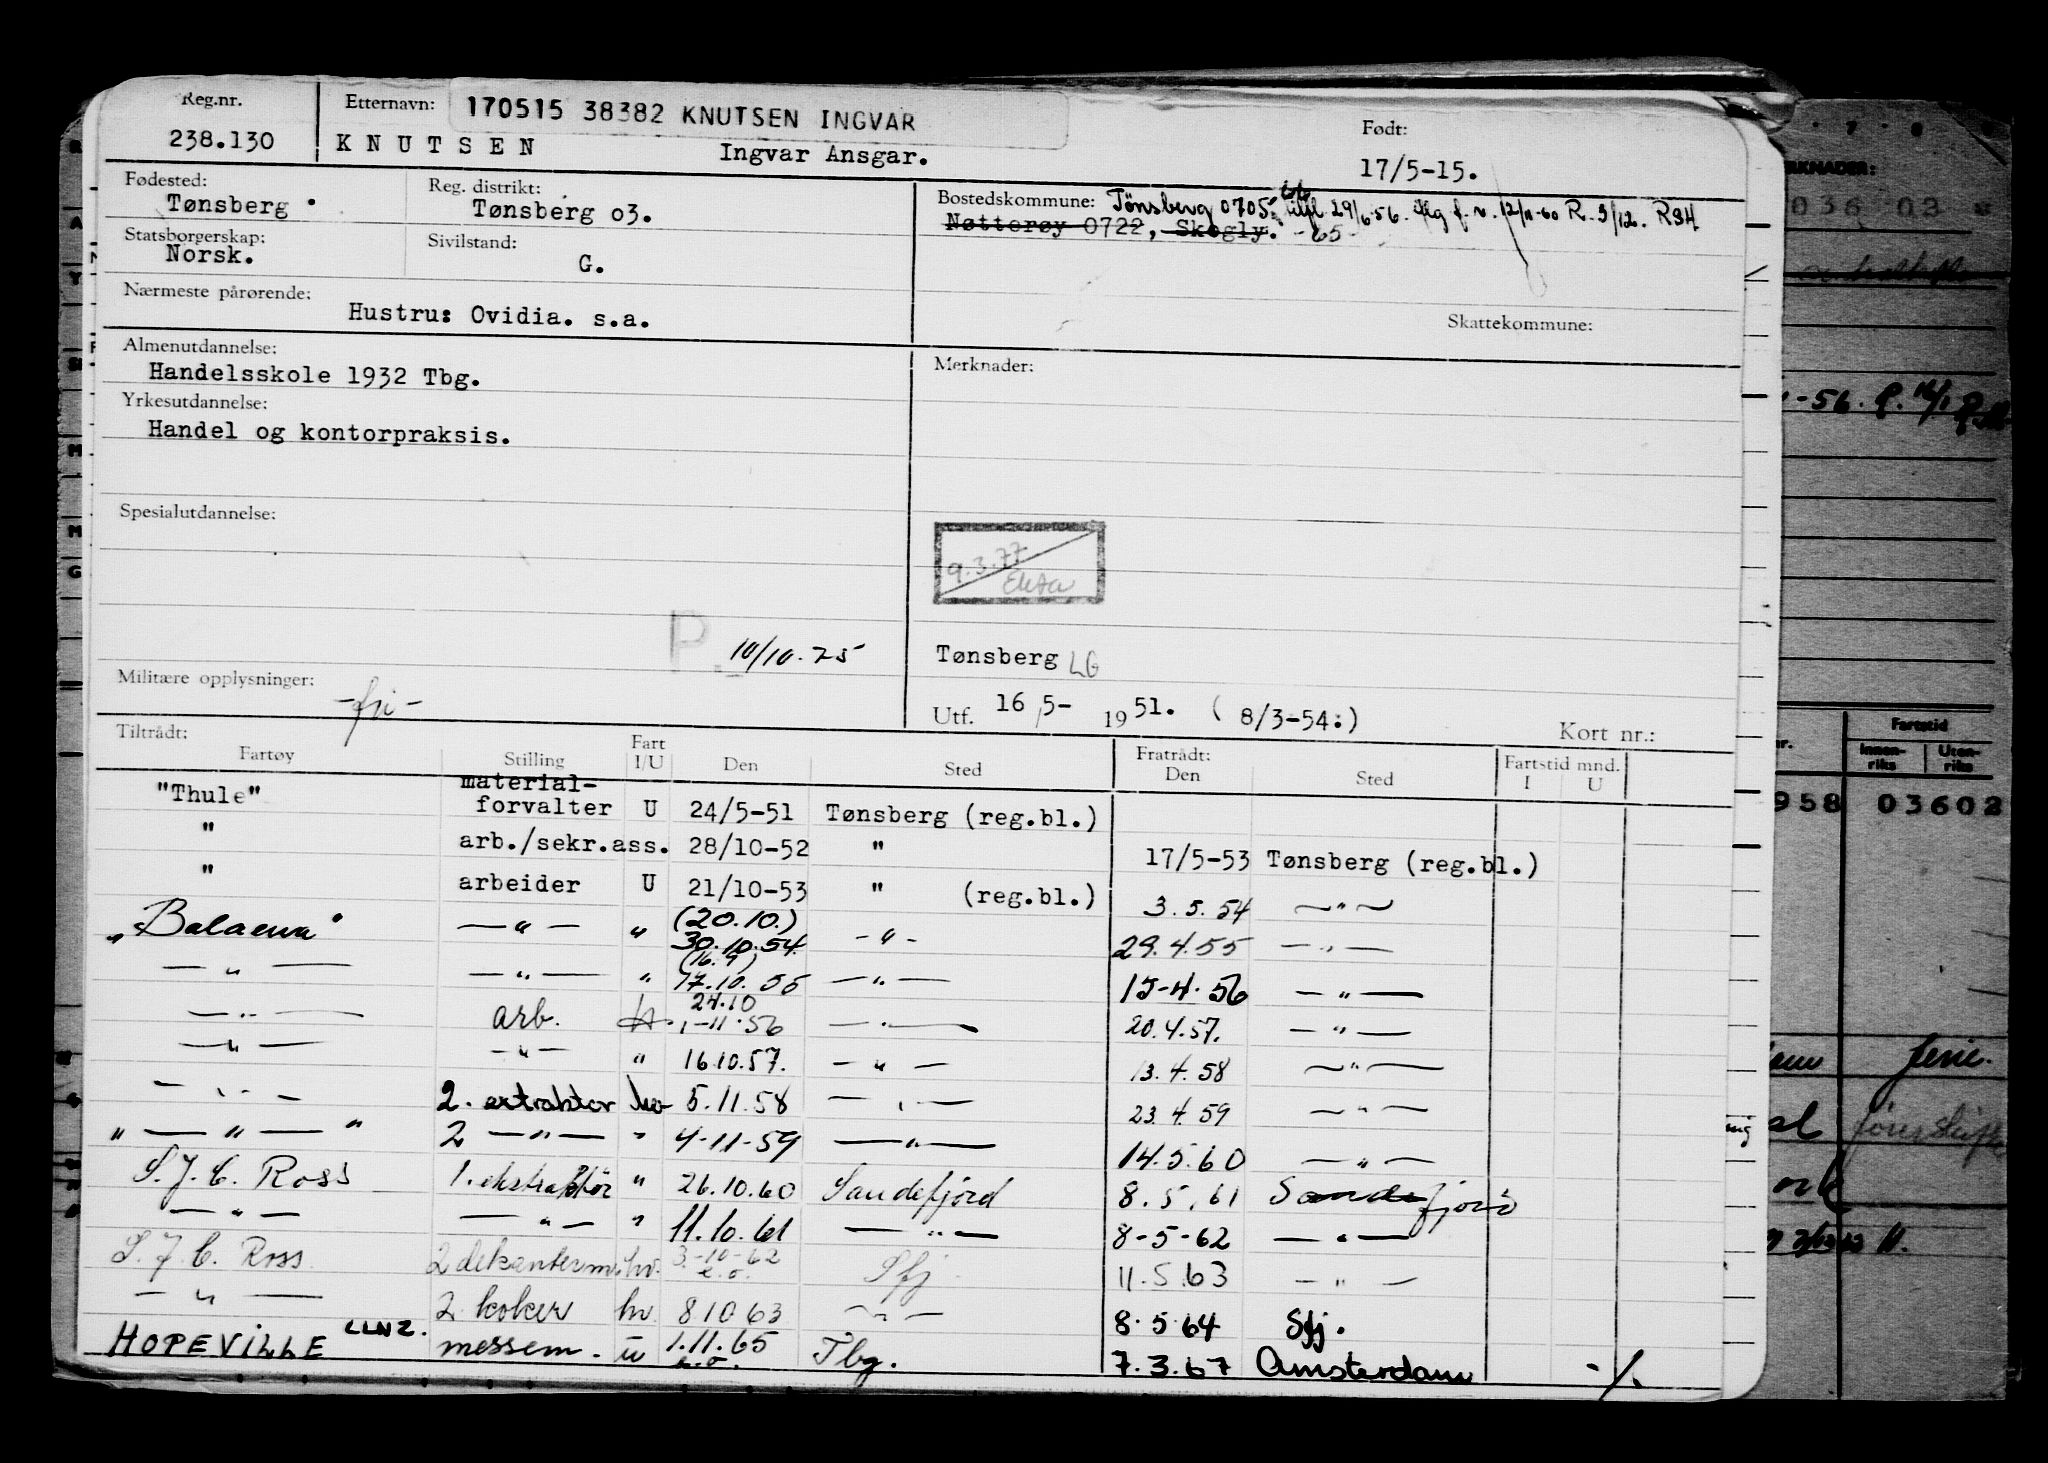 Reg.nr. Etternavn: 170515 38382 KNUTSEN INGVAR Født:
238.130 KNUTSEN Ingvar Ansgar. 17/5-15.
Fødested: Reg. distrikt: Bostedskommune: Tönsberg 0705.
Tønsberg Tønsberg o3. Nøtterøy 0722, Skogly. -65-
Statsborgerskap: Sivilstand:
Norsk. G.
Nærmeste pårørende:
Hustru: Ovidia. s.a. Skattekommune:
Almenutdannelse: Merknader:
Handelsskole 1932 Tbg.
Yrkesutdannelse:
Handel og kontorpraksis.
Spesialutdannelse:
9.3.77
P. 10/10.75 Tønsberg LG
Militære opplysninger:
-fri- Utf. 16/5- 1951. ( 8/3-54:) Kort nr.:
Tiltrådt: Fratrådt:
Fartøy Stilling Fart I/U Den Sted Den Sted Fartstid mnd. I U
"Thule" material-forvalter U 24/5-51 Tønsberg (reg.bl.)
" arb./sekr.ass. 28/10-52 " 17/5-53 Tønsberg (reg.bl.)
" arbeider U 21/10-53 " (reg.bl.) 3.5.54 — " —
„Balaena" — " — " (20.10.) 30.10.54 - " - 29.4.55 — " —
— " — — " — " (16.9) 17.10.55 — " — 15-4.56 — " —
— " — arb. 24.10 1-11.56 — " — 20.4.57. — " —
— " — — " — " 16.10.57. — " — 13.4.58 — " —
— " — 2. extraktor hv 5.11.58 — " — 23.4.59 — " —
" — " — " 2 — " — " 4-11-59 — " — 14.5.60 — " —
S.J.C. Ross 1. ekstraktör " 26.10.60 Sandefjord 8.5.61 Sandefjord
— " — — " — " 11.10.61 — " — 8-5-62 — " —
S.J.C. Ross 2 dekanterm. hv. 3-10-62 e.o. Sfj 11.5.63 — " —
— " — 2 koker hv 8 10 63 — " — 8.5.64 Sfj.
HOPEVILLE LLNZ. messem. u 1.11.65 e.o. Tbg. 7.3.67 Amsterdam -/.
RKNADER:
036 02
-56.
Fartstid
Innen-riks Uten-riks
958 03602
ferie.